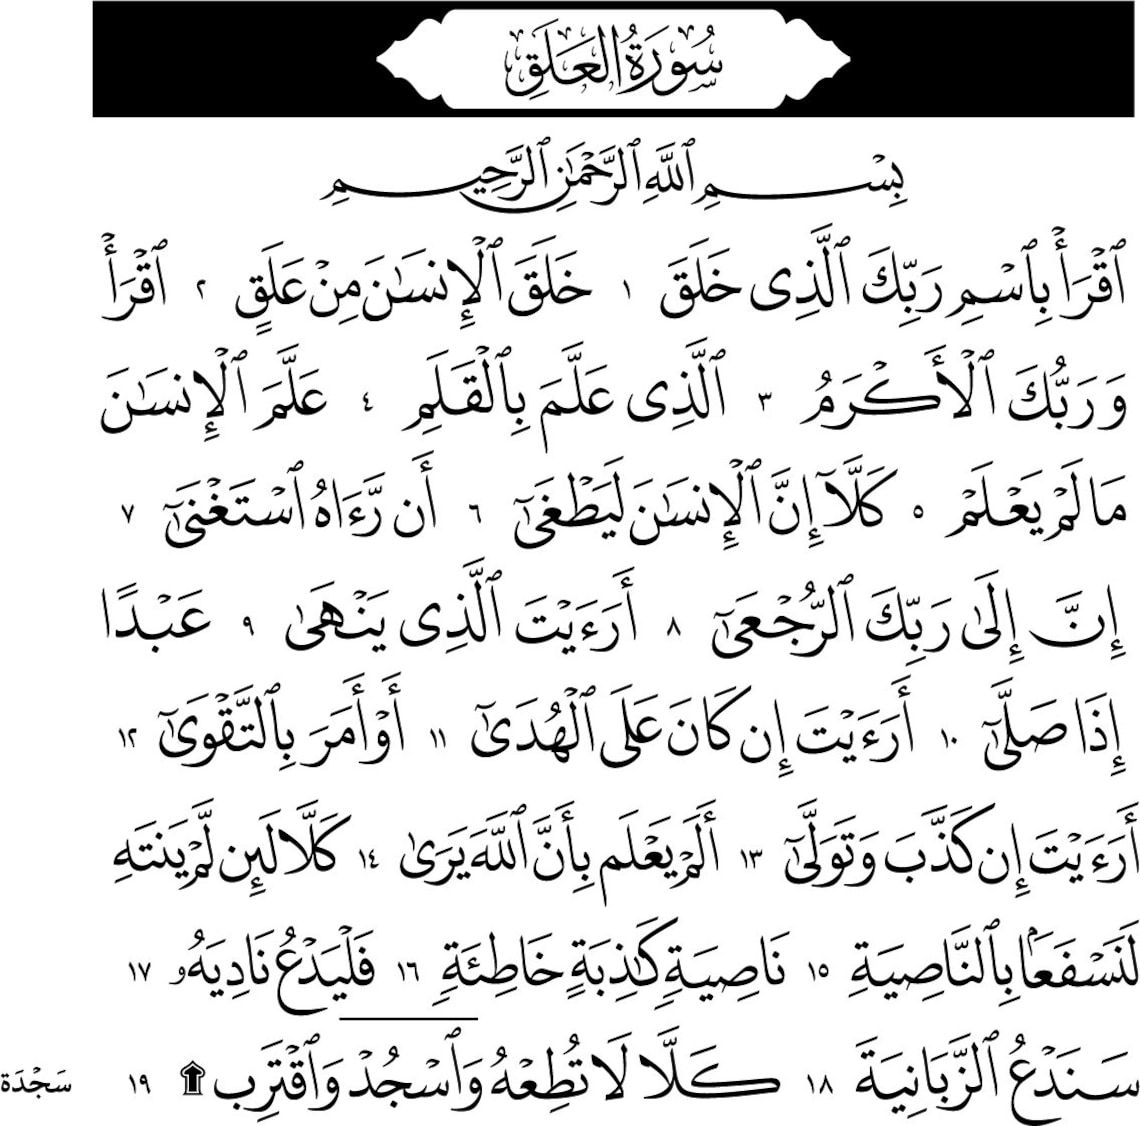 سُورَةُ الْعَلَقِ
بِسْمِ ٱللَّهِ ٱلرَّحْمَٰنِ ٱلرَّحِيمِ
ٱقْرَأْ بِٱسْمِ رَبِّكَ ٱلَّذِى خَلَقَ ١ خَلَقَ ٱلْإِنسَٰنَ مِنْ عَلَقٍ ٢ ٱقْرَأْ
وَرَبُّكَ ٱلْأَكْرَمُ ٣ ٱلَّذِى عَلَّمَ بِٱلْقَلَمِ ٤ عَلَّمَ ٱلْإِنسَٰنَ
مَا لَمْ يَعْلَمْ ٥ كَلَّآ إِنَّ ٱلْإِنسَٰنَ لَيَطْغَىٰٓ ٦ أَن رَّءَاهُ ٱسْتَغْنَىٰٓ ٧
إِنَّ إِلَىٰ رَبِّكَ ٱلرُّجْعَىٰٓ ٨ أَرَءَيْتَ ٱلَّذِى يَنْهَىٰ ٩ عَبْدًا
إِذَا صَلَّىٰٓ ١٠ أَرَءَيْتَ إِن كَانَ عَلَى ٱلْهُدَىٰٓ ١١ أَوْ أَمَرَ بِٱلتَّقْوَىٰٓ ١٢
أَرَءَيْتَ إِن كَذَّبَ وَتَوَلَّىٰٓ ١٣ أَلَمْ يَعْلَم بِأَنَّ ٱللَّهَ يَرَىٰ ١٤ كَلَّا لَئِن لَّمْ يَنتَهِ
لَنَسْفَعًۢا بِٱلنَّاصِيَةِ ١٥ نَاصِيَةٍ كَٰذِبَةٍ خَاطِئَةٍ ١٦ فَلْيَدْعُ نَادِيَهُۥ ١٧
سَنَدْعُ ٱلزَّبَانِيَةَ ١٨ كَلَّا لَا تُطِعْهُ وَٱسْجُدْ وَٱقْتَرِب ۩ ١٩ سَجْدَة